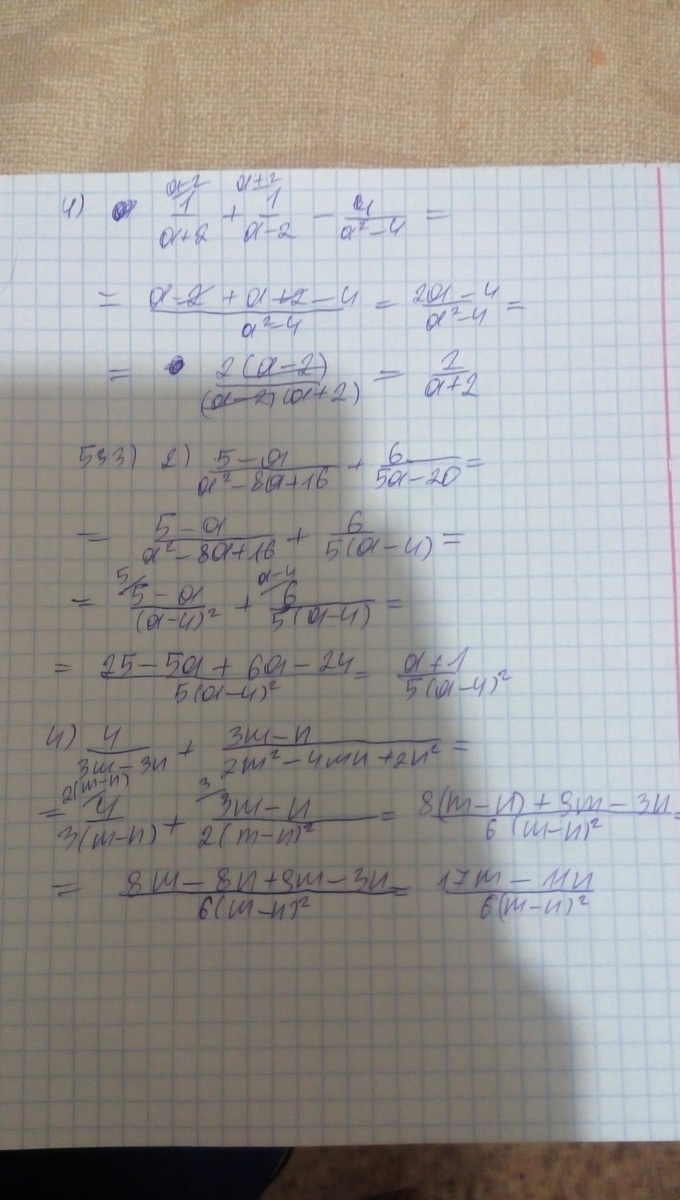 4) 1/(a+2) ^(a-2) + 1/(a-2) ^(a+2) - 4/(a²-4) =
= (a-2+a+2-4)/(a²-4) = (2a-4)/(a²-4) =
= 2(a-2)/((a-2)(a+2)) = 2/(a+2)
533) 2) (5-a)/(a²-8a+16) + 6/(5a-20) =
= (5-a)/(a²-8a+16) + 6/(5(a-4)) =
= (5-a)/(a-4)² ^5 + 6/(5(a-4)) ^(a-4) =
= (25-5a+6a-24)/(5(a-4)²) = (a+1)/(5(a-4)²)
4) 4/(3m-3n) + (3m-n)/(2m²-4mn+2n²) =
= 4/(3(m-n)) ^(2(m-n)) + (3m-n)/(2(m-n)²) ^3 = (8(m-n)+9m-3n)/(6(m-n)²) =
= (8m-8n+9m-3n)/(6(m-n)²) = (17m-11n)/(6(m-n)²)